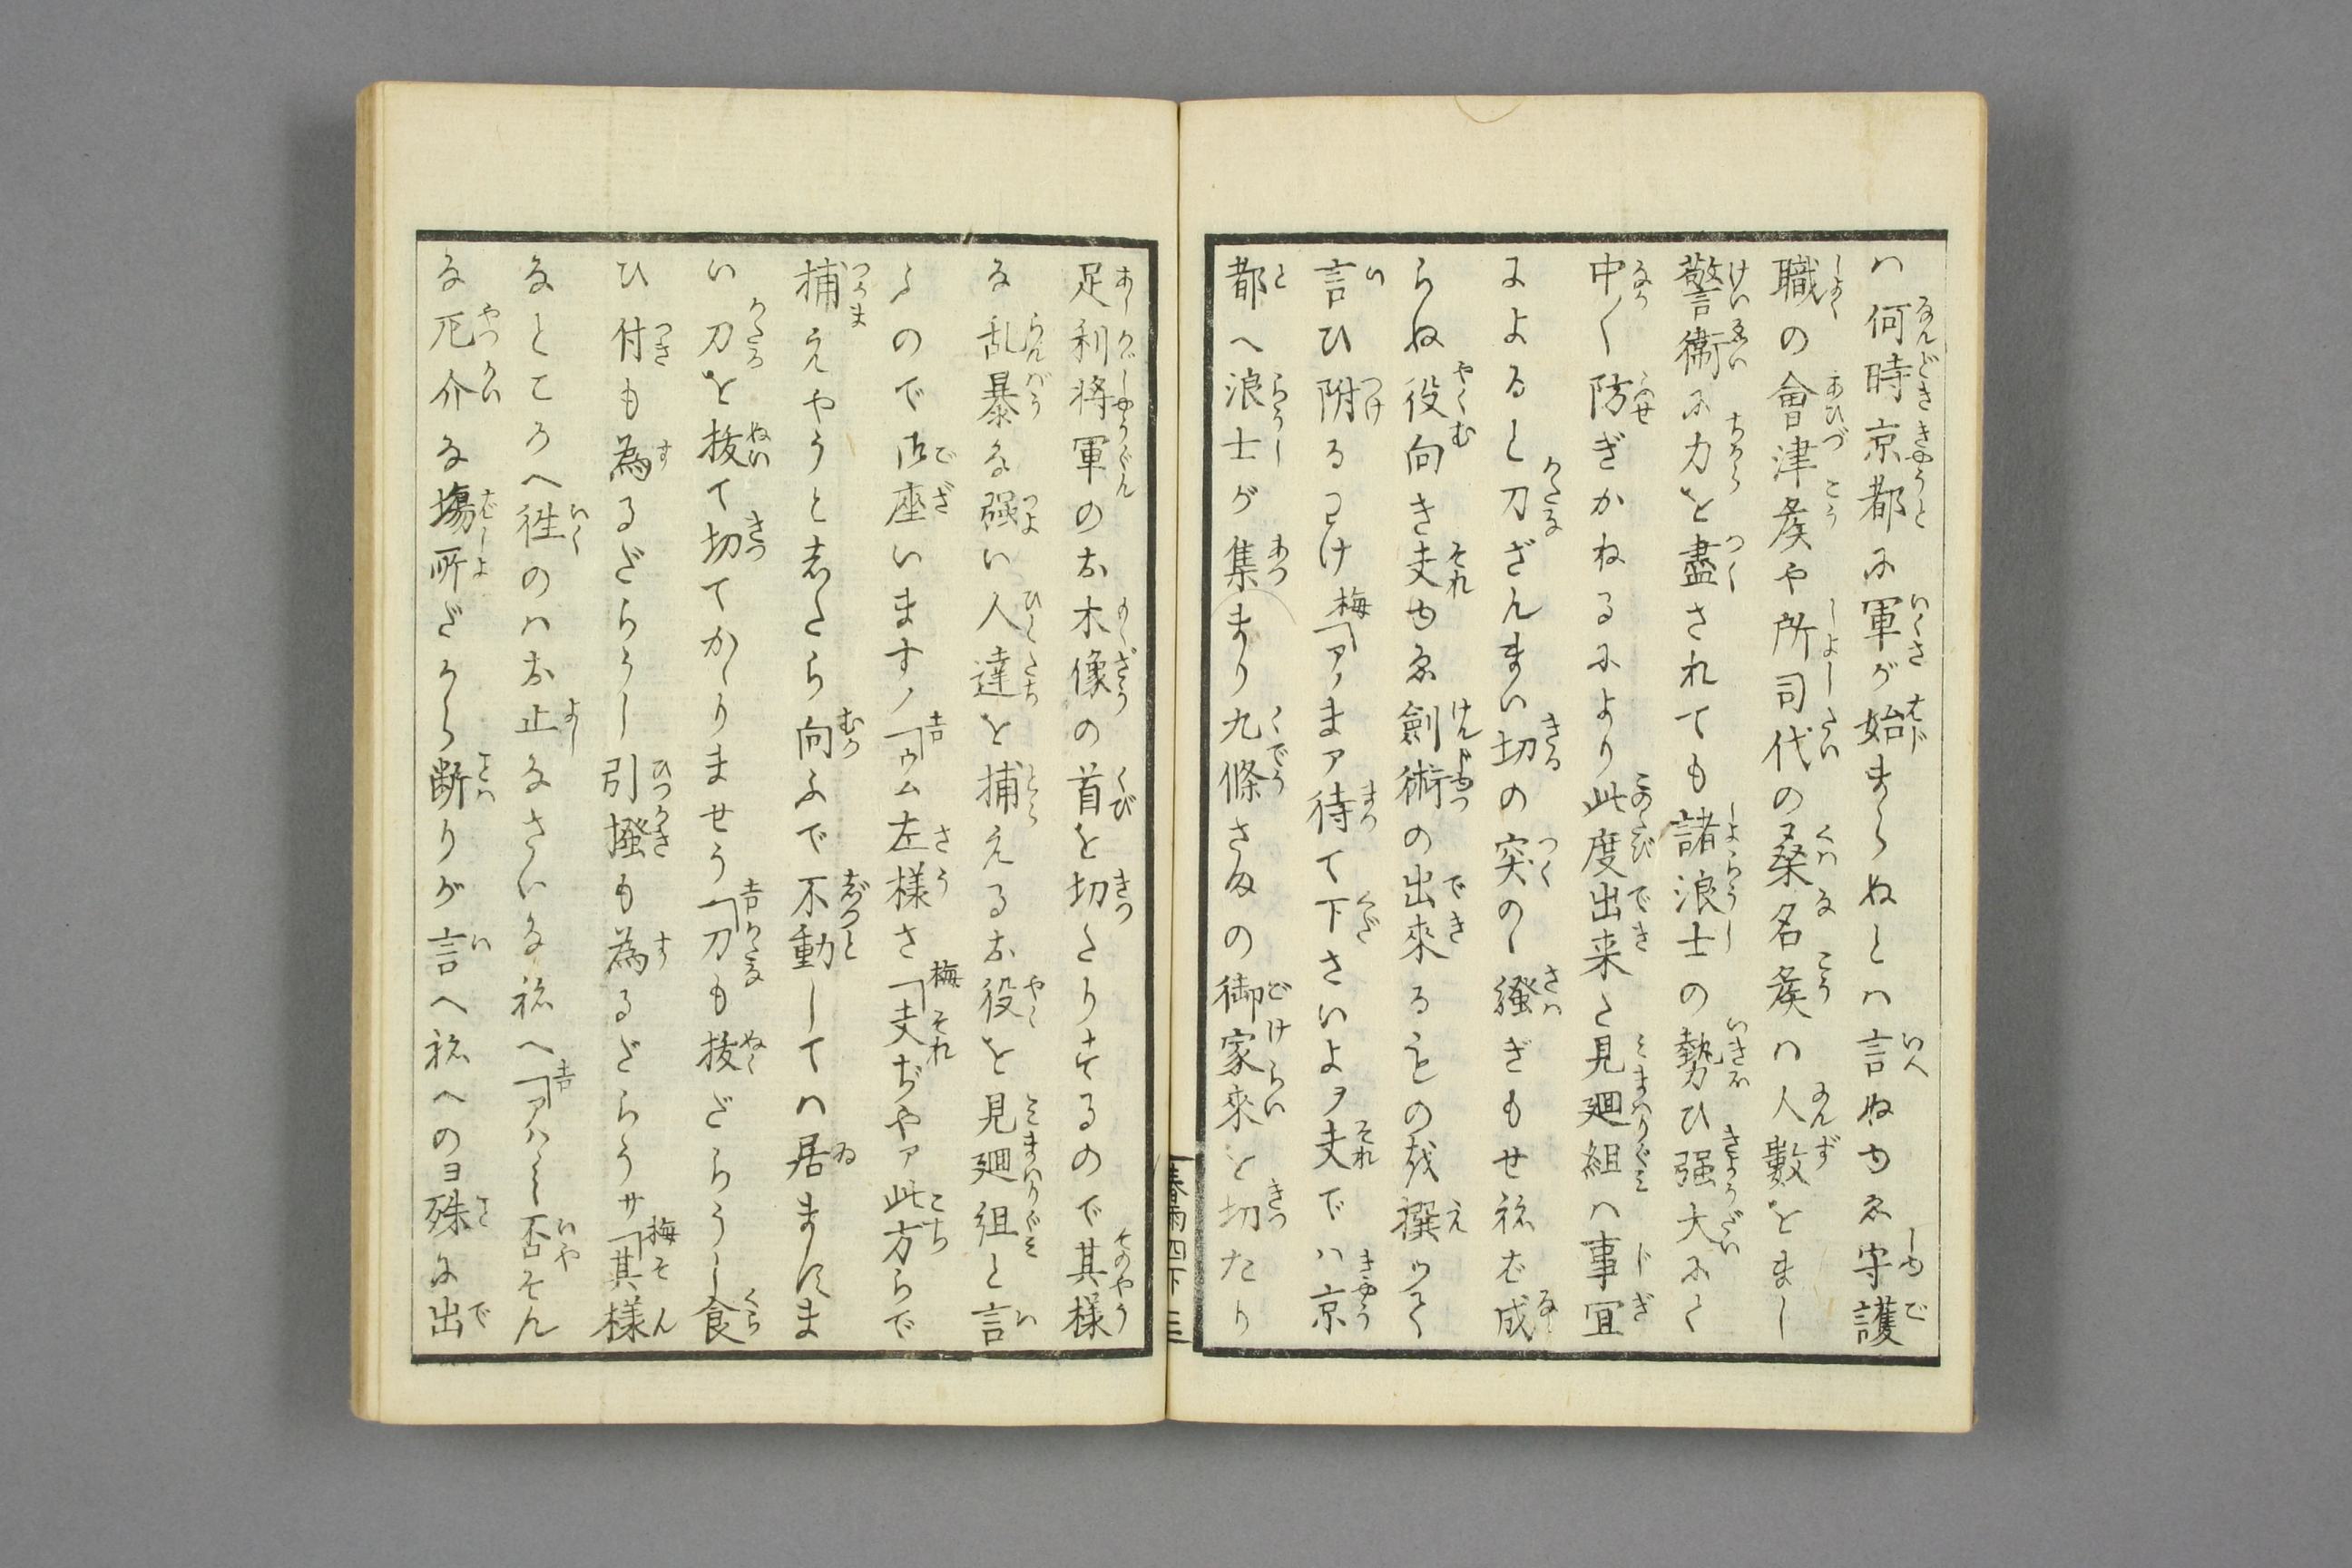 ハ何時京都に軍が始まらぬとハ言ぬゆゑ守護
職の會津侯や所司代の桑名侯ハ人數をまし
警衞に力を盡されても諸浪士の勢ひ强大にて
中〱防ぎかねるにより此度出来た見廻組ハ事宜
によると刀ざんまい切の突のと騷ぎもせねば成
らぬ役向き夫ゆゑ劍術の出來るものを撰ッて
言ひ附るわけ梅「アヽまア待て下さいよヲ夫でハ京
都へ浪士が集まり九條さまの御家來を切たり
春雨四下
足利將軍のお木像の首を切たりするので其樣
な乱暴な强い人達を捕えるお役を見廻組と言
ふので御座いますノ吉「ウム左樣さ梅「夫ぢやア此方らで
捕えやうとしたら向ふで不動としてハ居ますま
い刀を抜て切てかゝりませう吉「刀も抜だらうし食
ひ付も為るだらうし引掻も為るだらうサ梅「其樣
なところへ徃のハお止なさいなねへ吉「アハヽヽ否そん
な厄介な塲所だから斷りが言へねへのヨ殊に出